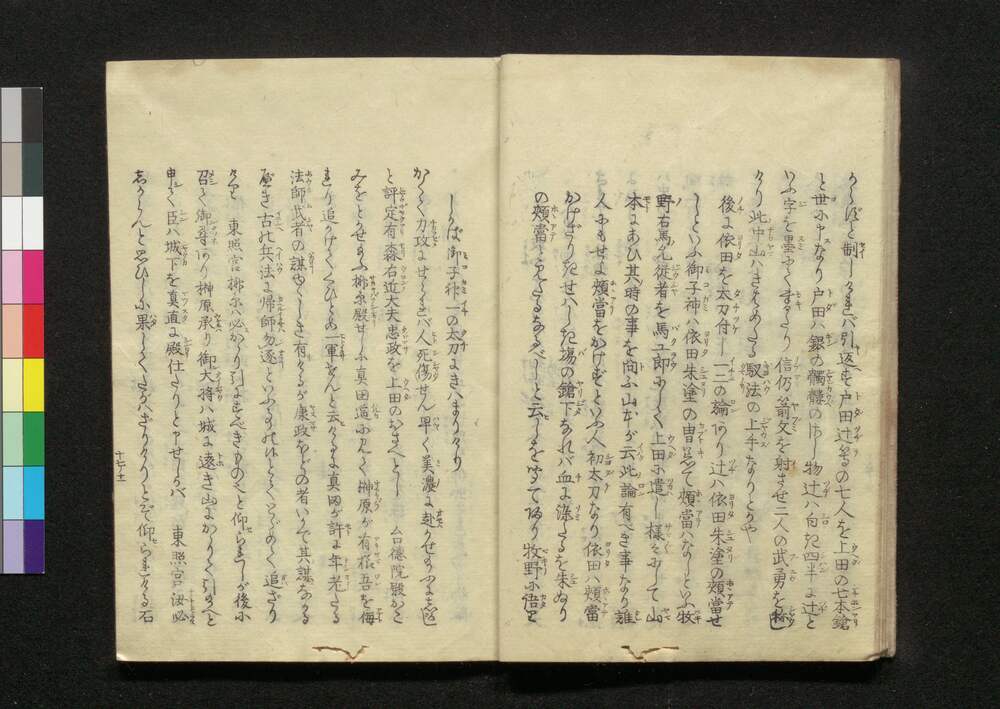 からばと制しければ引返す戸田辻等の七人を上田の七本鎗
と世にいふなり戸田は銀の髑髏のさし物辻は白き四半に辻と
いふ字を墨にてすりたり信仍箭文を射させ二人の武勇を称し
けり此中山はきはめたる馭法の上手なりとかや
後に依田を太刀付し一二の論あり辻は依田朱塗の頬當せ
しといふ御子神は依田朱塗の冑にて頬當はなしといふ牧
野右馬允従者を馬工郎にして上田に遣し様々にして山
本にあひ其時の事を問ふ山本が云此論有べき事なり誰
人にもせよ頬當をかけずといふ人初太刀なり依田は頬當
かけざりきせはしき場の鎗下なれば血に染たるを朱ぬり
の頬當と見たるなるべしと云しを聞て帰り牧野に語る
しかば御子神一の太刀にきはまりけり
かくて力攻にせられば人死傷せん早く美濃に赴かせ給ふべし
と評定有森右近大夫忠政を上田のおさへとし 台徳院殿かこ
みをとかせ給ふ榊原殿せしに真田追に及て榊原が有様吾を侮
れり追かけてくひとめ一軍せんと云けるに真田が許に年老たる
法師武者の謀ふかしき有けるが康政ほどの者いかで其謀なかる
べき古の兵法に帰師勿遂といふものをとてとゞめて追ざり
けり 東照宮榊原は必かゝり引なすべきものをと仰られしが後に
召て御尋あり榊原承り御大将は城に遠き山にかゝりて引給へと
申て臣は城下を真直に殿仕たりと申せしかば 東照宮汝必
しからんと思ひしに果してたがはざりけりとぞ仰られける石
十七ノ十一